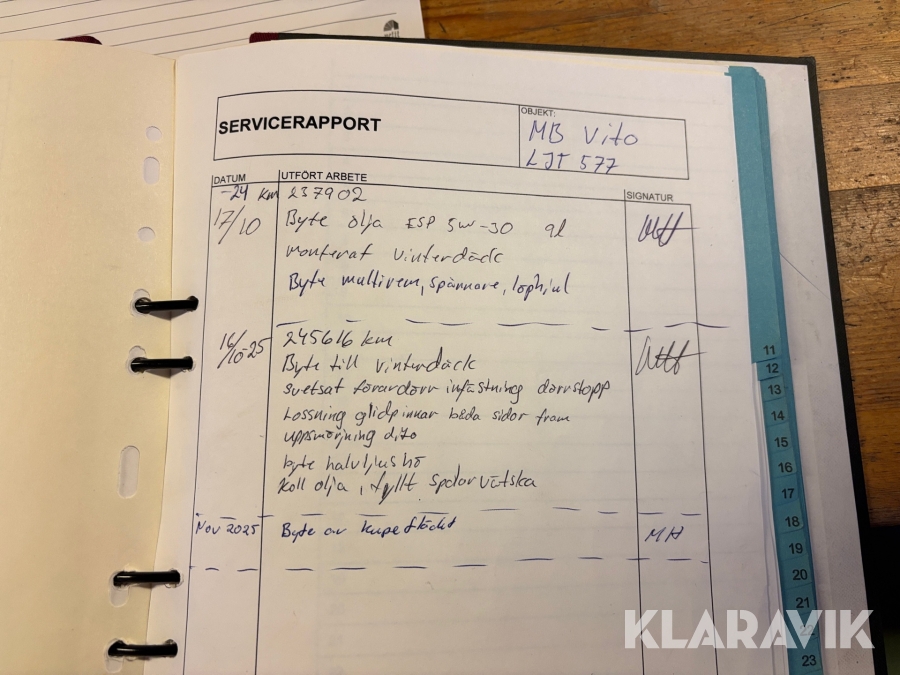 SERVICERAPPORT
OBJEKT:
MB Vito
LJT 577
DATUM
UTFÖRT ARBETE
SIGNATUR
-24 km 237902
17/10 Byte olja ESP 5W-30 9l
Monterat vinterdäck
Byte multirem, spännare, löphjul
16/10-25 245616 km
Byte till vinterdäck
Svetsat förardörr infästning dörrstopp
Lossning glidpinnar båda sidor fram
uppsmörjning dito
byte halvljus hö
Koll olja, fyllt spolarvätska
Nov 2025 Byte av kupefläckt MH
11
12
13
14
15
16
17
18
19
20
21
23
KLARAVIK